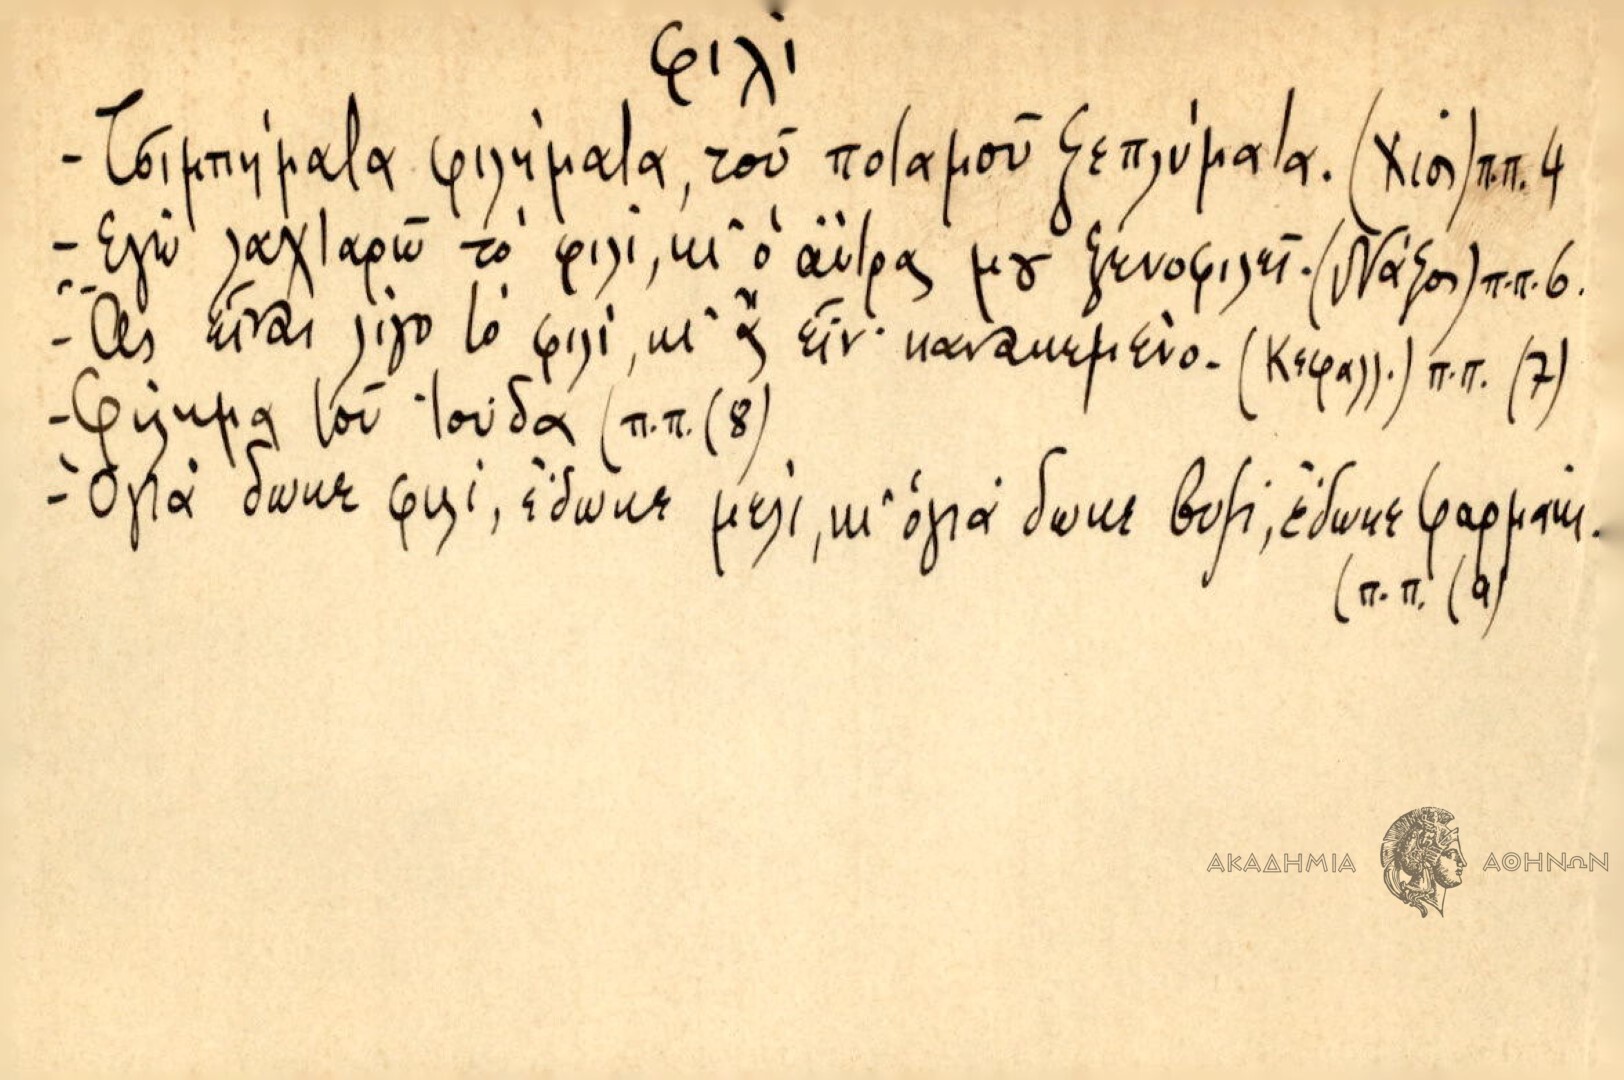 φιλὶ
- Τσιμπήματα φιλήματα, τοῦ ποταμοῦ ξεπλύματα. (Χίος) π.π. 4
- Ἐγὼ λαχταρῶ τὸ φιλὶ, κι' ὁ ἄντρας μου ξενοφιλεῖ. (Νάξος) π.π. 6.
- Ἂς εἶναι λίγο τὸ φιλὶ, κι' ἂς εἶν' κανακεμένο. (Κεφαλλ.) π.π. (7)
- Φίλημα τοῦ Ἰούδα (π.π. (8)
- Ὁγιὰ δωκε φιλὶ, ἔδωκε μέλι, κι' ὁγιὰ δωκε βυζὶ, ἔδωκε φαρμάκι.
(π.π. (9)
ΑΚΑΔΗΜΙΑ ΑΘΗΝΩΝ